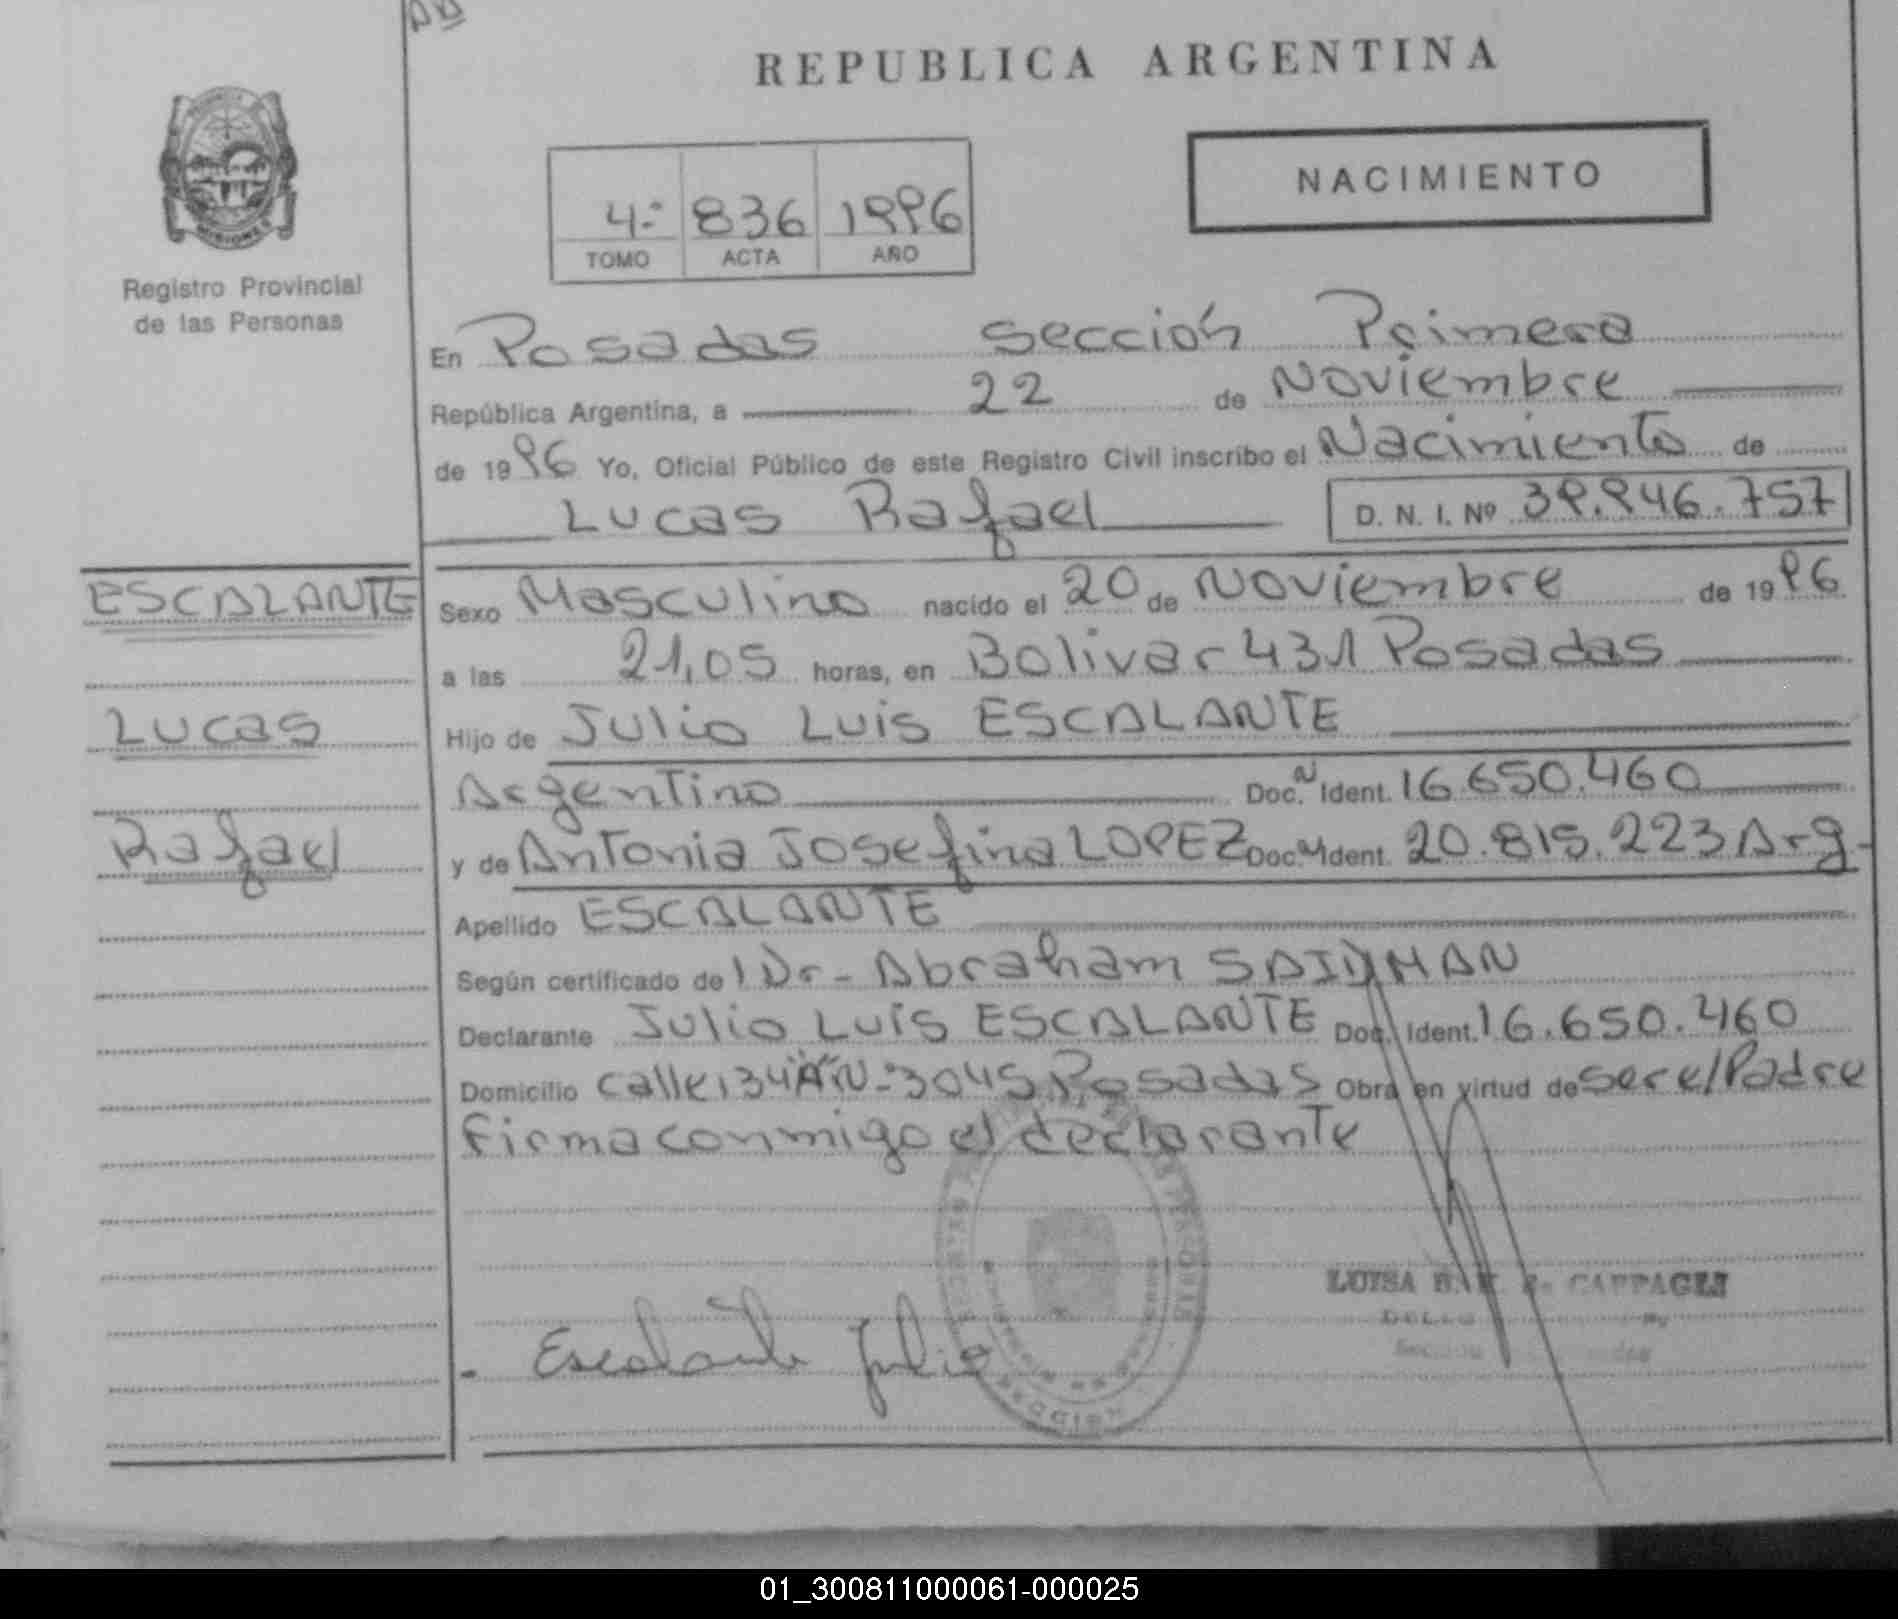 REPUBLICA ARGENTINA
NACIMIENTO
4.- 836 1996
TOMO ACTA AÑO
MISIONES
Registro Provincial
de las Personas
En Posadas Sección Primera
República Argentina, a 22 de Noviembre
de 1996 Yo, Oficial Público de este Registro Civil inscribo el Nacimiento de
Lucas Rafael D. N. I. Nº 39.946.757
ESCALANTE
Lucas
Rafael
Sexo Masculino nacido el 20 de Noviembre de 1996
a las 21,05 horas, en Bolivar 431 Posadas
Hijo de Julio Luis ESCALANTE
Argentino Doc. N Ident. 16.650.460
y de Antonia Josefina LOPEZ Doc. N Ident. 20.815.223 Arg.
Apellido ESCALANTE
Según certificado de l Dr.- Abraham SAIDMAN
Declarante Julio Luis ESCALANTE Doc. Ident. 16.650.460
Domicilio calle 134 "A" N-º 3045 Posadas Obra en virtud de ser el Padre
firma conmigo el declarante
LUISA
Escalante Julio
01_300811000061-000025